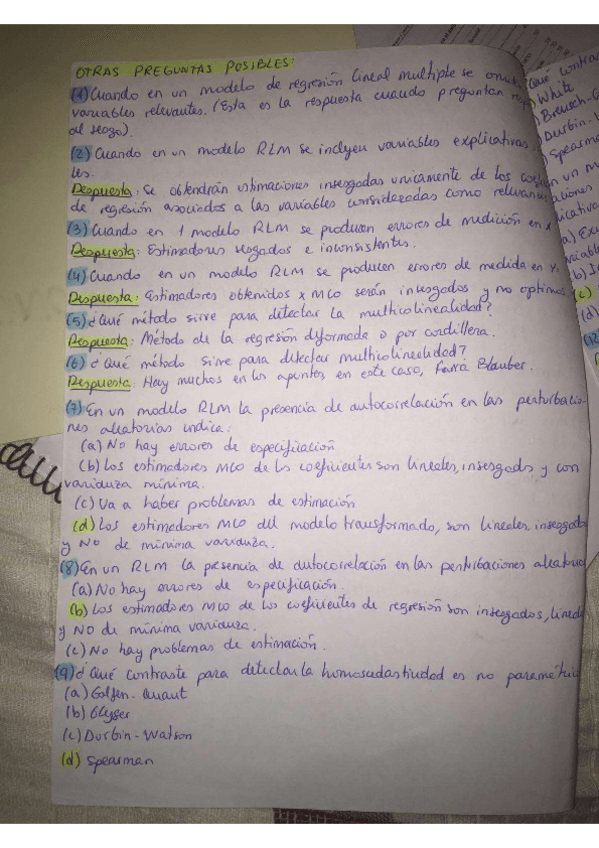 OTRAS PREGUNTAS POSIBLES:
(1) Cuando en un modelo de regresión lineal multiple se
variables relevantes. (Esta es la respuesta cuando preguntan
al sesgo).
(2) Cuando en un modelo RLM se incluyen variables explicativas
les.
Respuesta: Se obtendrán estimaciones insesgadas unicamente de los
de regresión asociados a las variables consideradas como
(3) Cuando en 1 modelo RLM se producen errores de medición en
Respuesta: Estimadores sesgados e inconsistentes.
(4) Cuando en un modelo RLM se producen errores de medida en Y.
Respuesta: Estimadores obtenidos x MCO serán insesgados y no optimos
(5) ¿Qué método sirve para detectar la multicolinealidad?
Respuesta: Método de la regresión dyformada o por cordillera.
(6) ¿Qué método sirve para detectar multicolinealidad?
Respuesta: Hay muchos en los apuntes en este caso, Farra Blauber.
(7) En un modelo RLM la presencia de autocorrelación en las perturbacio-
nes aleatorias indica:
(a) No hay errores de especificación
(b) Los estimadores MCO de los coeficientes son lineales, insesgados y con
varianza mínima.
(c) Va a haber problemas de estimación
(d) Los estimadores MCO del modelo transformado, son lineales, insesgado
y NO de mínima varianza.
(8) En un RLM la presencia de autocorrelación en las perturbaciones
(a) No hay errores de especificación.
(b) Los estimadores MCO de los coeficientes de regresión son insesgados,
y NO de mínima varianza.
(c) No hay problemas de estimación.
(9) ¿Qué contraste para detectar la homoscedasticidad es no
(a) Golfen-Quant
(b) Glyser
(c) Durbin-Watson
(d) Spearman
White
Durbin-
(a)
(b)
(c)
(d)